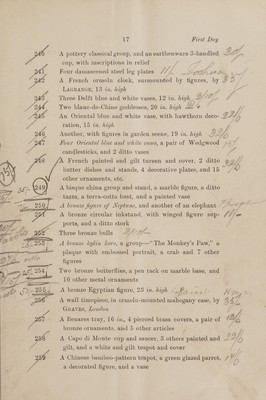 17 First Day
240 A pottery classical group, and an earthenware 3-handled
cup, with inscriptions in relief
241 Four damascened steel leg plates
242 A French ormolu clock, surmounted by figures, by
LAGRANGE, 13 in. high
243 Three Delft blue and white vases, 12 in. high
244 Two blanc-de-Chine goddesses, 20 in. high
245 An Oriental blue and white vase, with hawthorn deco-
ration, 15 in. high
246 Another, with figures in garden scene, 19 in. high
247 Four Oriental blue and white vases, a pair of Wedgwood
candlesticks, and 2 ditto vases
248 A French painted and gilt tureen and cover, 2 ditto
butter dishes and stands, 4 decorative plates, and 15
other ornaments, etc.
249 A bisque china group and stand, a marble figure, a ditto
tazza, a terra-cotta bust, and a painted vase
250 A bronze figure of Neptune, and another of an elephant
251 A bronze circular inkstand, with winged figure sup-
ports, and a ditto stork
252 Three bronze bulls
253 A bronze kylin koro, a group—"The Monkey's Paw," a
plaque with embossed portrait, a crab and 7 other
figures
254 Two bronze butterflies, a pen rack on marble base, and
10 other metal ornaments
255 A bronze Egyptian figure, 25 in. high
256 A wall timepiece, in ormolu-mounted mahogany case, by
GRAVES, London
257 A Benares tray, 16 in., 4 pierced brass covers, a pair of
bronze ornaments, and 5 other articles
258 A Capo di Monte cup and saucer, 3 others painted and
gilt, and a white and gilt teapot and cover
259 A Chinese bamboo-pattern teapot, a green glazed parrot,
a decorated figure, and a vase